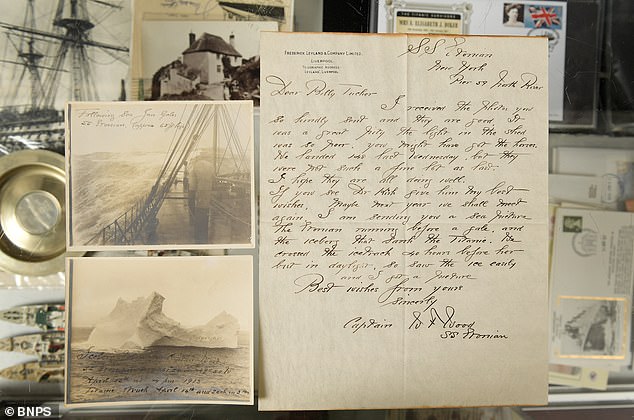 THE TITANIC SURVIVORS
MRS A. ELISABETH J. DOKER
FREDERICK LEYLAND & COMPANY LIMITED.
LIVERPOOL.
TELEGRAPHIC ADDRESS
LEYLAND, LIVERPOOL
SS Etonian
New York
Pier 59 North River
Dear Billy Tucker
I received the photos you
so kindly sent and they are good. It
was a great pity the light in the shed
was so poor. you might have got the horses.
We landed last Wednesday but they
were not such a fine lot as last.
I hope they are all doing well.
If you see Dr Kirk give him my best
wishes. Maybe next year we shall meet
again. I am sending you a sea picture
the Etonian running before a gale, and
the iceberg that sank the Titanic. We
crossed the icetrack 40 hours before her
but in daylight, so saw the ice easily
and I got a picture
Best wishes from yours
sincerly
Captain W F Wood
SS Etonian
Following Sea,
SS Etonian
Titanic struck April 14th and sank in
© BNPS